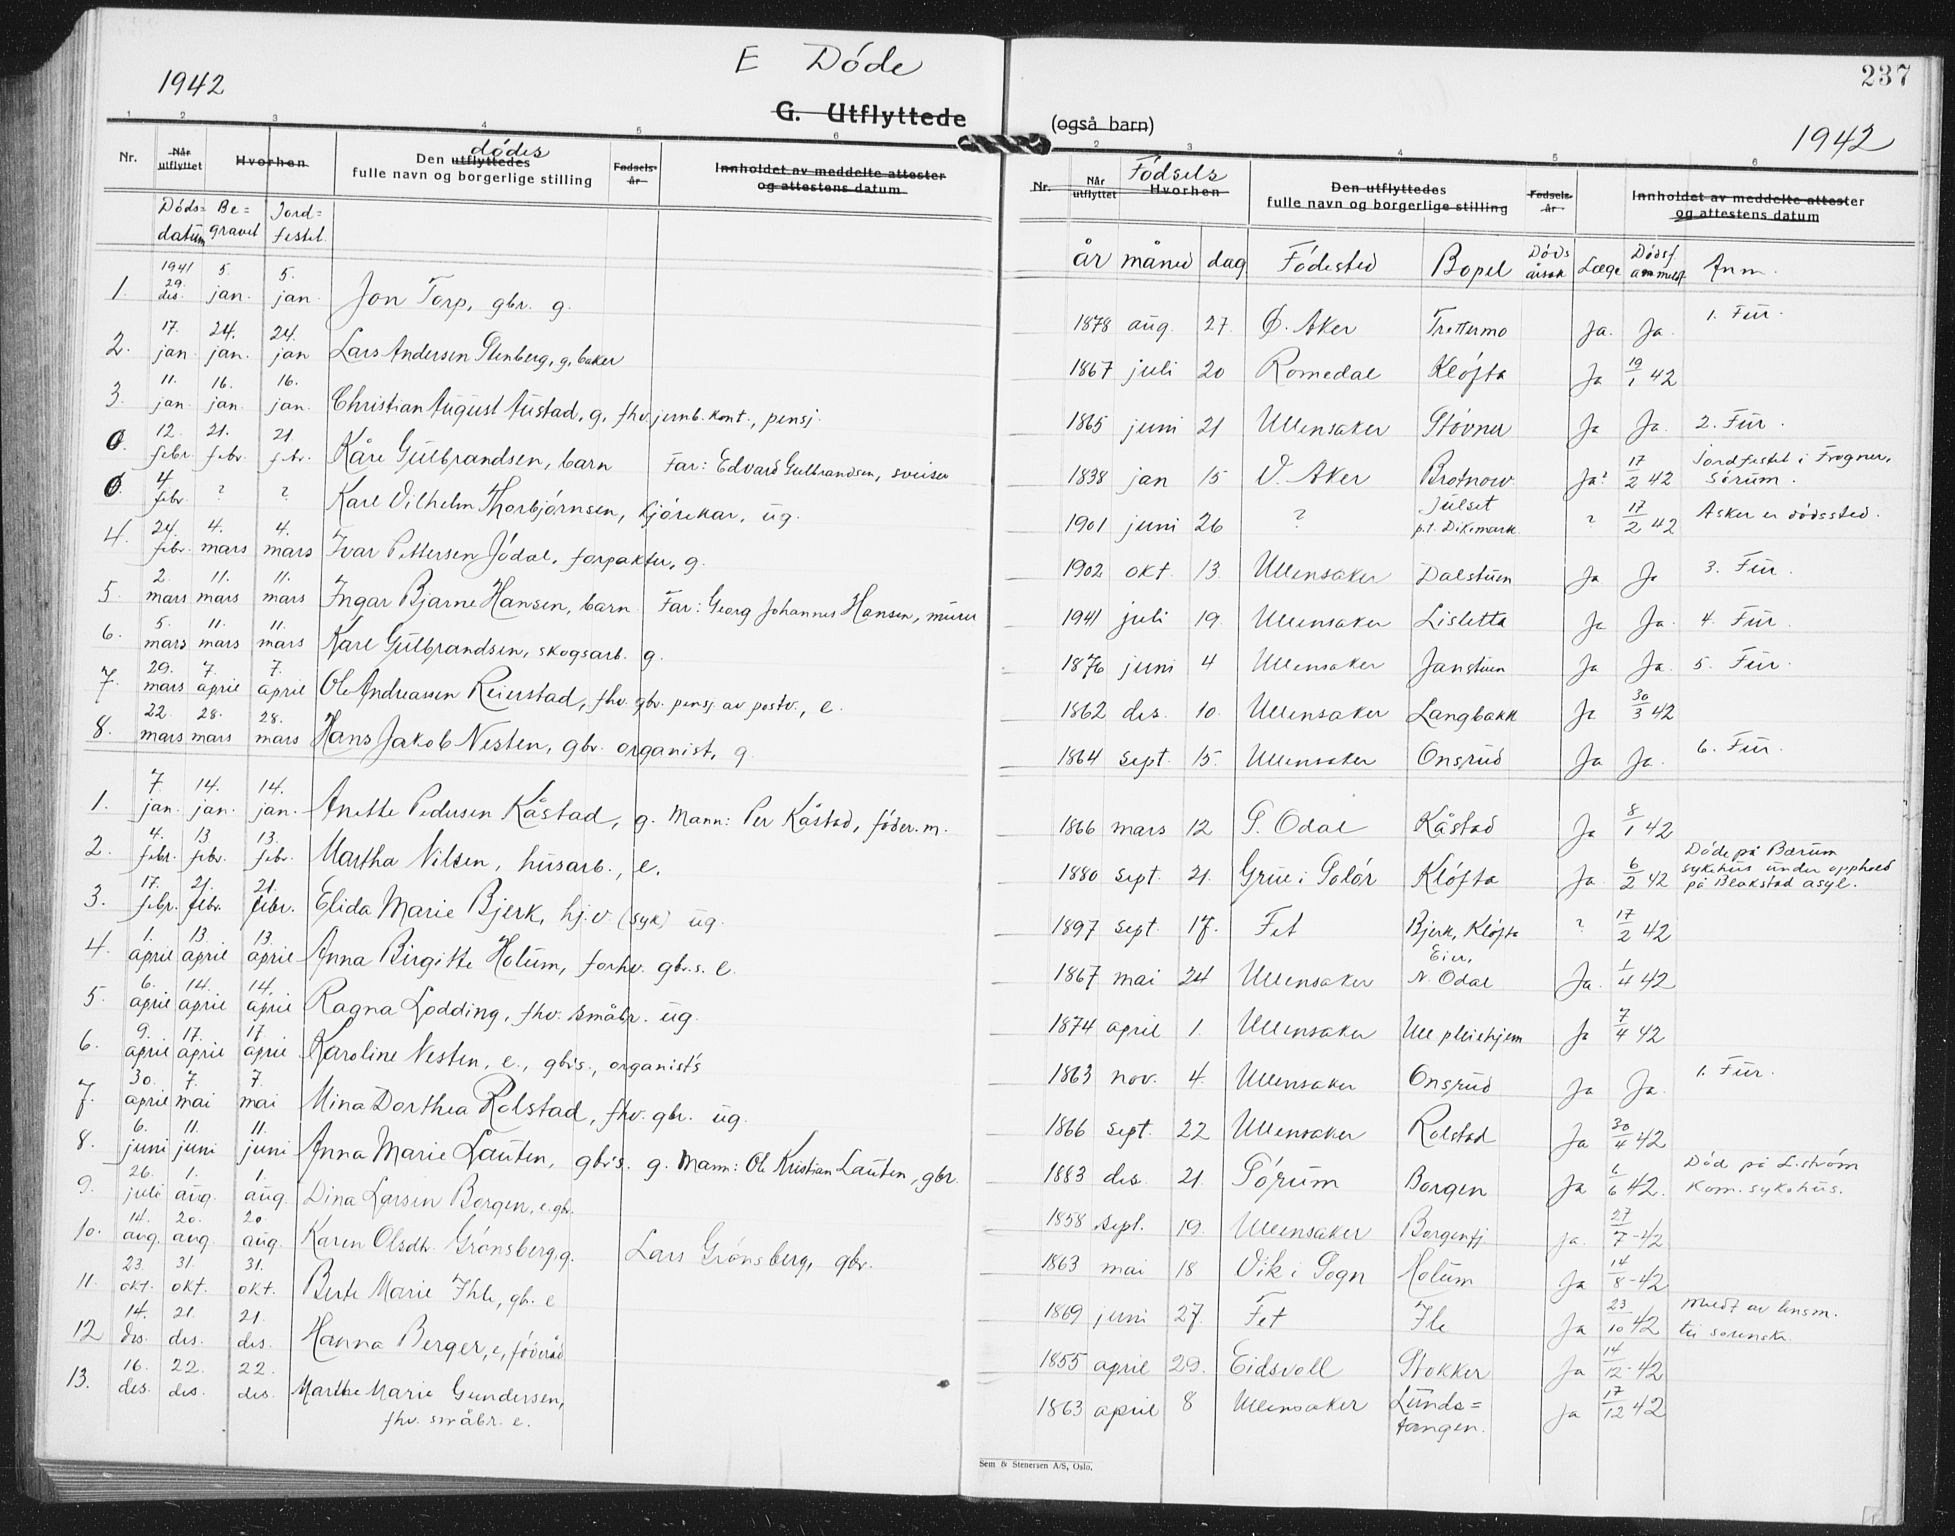 1942
E Døde
237
G. Utflyttede (også barn)
1942
1 2 3 4 5 6 2 3 4 5 6
Nr. Når utflyttet Hvorhen Den utflyttedes dødes fulle navn og borgerlige stilling Fødsels-år Innholdet av meddelte attester og attestens datum
Nr. Når utflyttet Fødsels Hvorhen Den utflyttedes fulle navn og borgerlige stilling Fødsels-år Innholdet av meddelte attester og attestens datum
Døds= datum Be= gravet Jord= festet
år måned dag Fødested Bopel Døds årsak Læge Dødsf. anmeldt Anm.
1. 1941 29. des. 5. jan. 5. jan. Jon Torp, gbr. g. 1878 aug. 27. Ø. Aker Trettermo Ja. Ja. 1. Fur.
2. 17. jan 24. jan. 24. jan Lars Andersen Stenberg, g. baker 1867 juli 20 Romedal Kløfta Ja 19/1 42
3. 11. jan. 16. jan. 16. jan. Christian August Austad, g. fhv. jernb. kont., pensj. 1865 juni 21 Ullensaker Støvner Ja Ja. 2. Fur.
0. 12. febr. 21. febr. 21. febr. Kåre Gulbrandsen, barn Far: Edvard Gulbrandsen, sveiser 1838 jan 15 V. Aker Brotnow Ja? 17/2 42 Jordfestet i Frogner, Sørum.
0. 4 febr ? ? Karl Vilhelm Thorbjørnsen, kjørekar, ug. 1901 juni 26 ? Julset p.t. Dikemark ? 17/2 42 Asker er dødssted.
4. 24. febr. 4. mars 4. mars Ivar Pettersen Jødal, forpakter, g. 1902 okt. 13. Ullensaker Dalstuen Ja Ja 3. Fur.
5. 2. mars 11. mars 11. mars Ingar Bjarne Hansen, barn. Far: Georg Johannes Hansen, murer 1941 juli 19. Ullensaker Lisletta Ja Ja. 4. Fur.
6. 5. mars 11. mars 11. mars Karl Gulbrandsen, skogsarb. g. 1876 juni 4 Ullensaker Janstuen Ja Ja. 5. Fur.
7. 29. mars 7. april 7. april Ole Andreassen Reierstad, fhv. gbr. pensj. av postv., e. 1862 des. 10. Ullensaker Langbakk Ja 30/3 42
8. 22. mars 28. mars 28. mars Hans Jakob Nesten, gbr. organist, g. 1864 sept. 15. Ullensaker Onsrud Ja Ja. 6. Fur.
1. 7. jan. 14. jan. 14. jan. Anette Pedersen Kåstad, g. Mann: Per Kåstad, føder.m. 1866 mars 12 S. Odal Kåstad Ja 8/1 42
2. 4. febr. 13 febr. 13. febr. Martha Nilsen, husarb., e. 1880 sept. 21. Grue i Solør Kløfta Ja. 6/2 42 Døde på Bærum sykehus under opphold på Blakstad asyl.
3. 17. febr. 21. febr. 21. febr. Elida Marie Bjerk, hj.v. (syk) ug. 1897 sept. 17. Fet Bjerk, Kløfta ? 17/2 42
4. 1. april 13. april 13. april Anna Birgitte Holum, forhv. gbr.s. e. 1867 mai 24 Ullensaker Eier, N. Odal Ja. 1/4 42
5. 6. april 14. april 14. april Ragna Lodding, fhv. småbr. ug. 1874 april 1. Ullensaker Ull pleiehjem Ja 7/4 42
6. 9. april 17. april 17 april Karoline Nesten, e., gbr's., organist's 1863 nov. 4. Ullensaker Onsrud Ja Ja. 1. Fur.
7. 30. april 7. mai 7. mai Mina Dorthea Rolstad, fhv. gbr. ug. 1866 sept. 22 Ullensaker Rolstad Ja 30/4 42
8. 6. juni 11. juni 11. juni Anna Marie Lauten, gbr's. g. Mann: Ole Kristian Lauten, gbr. 1883 des. 21. Sørum Borgen Ja 6/6 42. Død på L.strøm Kom. sykehus.
9. 26. juli 1. aug. 1. aug. Dina Larsen Borgen, e. gbr. 1858 sept. 19. Ullensaker Borgenfj. Ja. 27/7-42
10. 14. aug. 20. aug. 20. aug. Karen Olsdtr. Grønsberg, g. Lars Grønsberg, gbr. 1863 mai 18 Vik i Sogn Holum Ja 14/8-42
11. 23. okt. 31. okt. 31. okt. Berte Marie Ihle, gbr. e 1869 juni 27. Fet Ile Ja 23/10 42 Meldt av lensm. til sorenskr.
12 14. des. 21. des. 21. des. Hanna Berger, e, føderåd 1855 april 29. Eidsvoll Stokker Ja 14/12-42
13. 16. des. 22. des. 22. des. Marthe Marie Gundersen, fhv. småbr. e. 1863 april 8 Ullensaker Lunds= tangen. Ja 17/12 42
Sem & Stenersen A/S, Oslo.